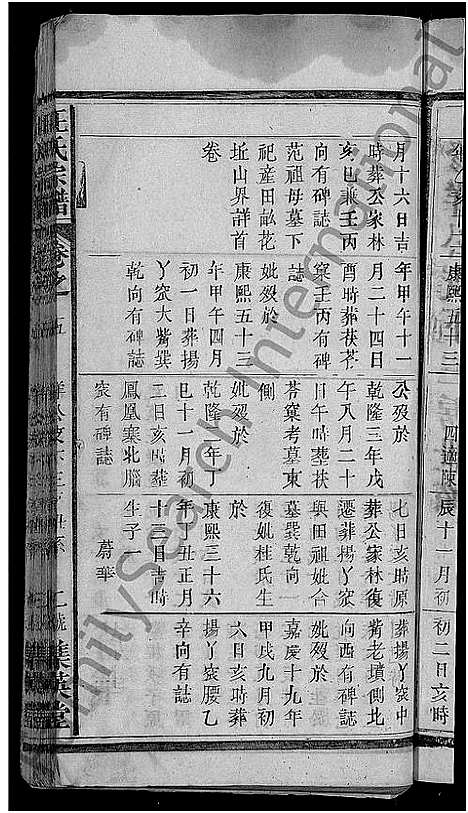 月十六日吉
時葬公家林
亥巳兼壬丙
向有碑誌
范祖母墓下
祀產田畝花
坵山界詳首
卷
年甲午十一
月二十四日
酉時葬茯苓
窠壬丙有碑
誌
妣歿於
康熙五十三
年甲午四月
初一日葬揚
丫窊大觜巽
乾向有碑誌
公歿於
乾隆三年戊
午八月二十
日午時葬茯
苓窠考墓東
側
妣歿於
乾隆 年丁
巳十一月初
二日亥時葬
鳳凰寨北腦
家有碑誌
七日亥時原
葬公家林復
遷葬揚丫窊
與田祖妣合
墓巽乾向
復妣桂氏生
於
康熙三十六
年丁丑正月
十三日吉時
生子一
蔚華
葬揚丫窊中
觜老墳側北
向酉有碑誌
妣歿於
嘉慶十九年
甲戌九月初
六日亥時葬
揚丫窊腰乙
辛向有誌
汪氏宗譜
卷之
五
康熙五十三
辰十一月初
初二日亥時
FamilySearch International